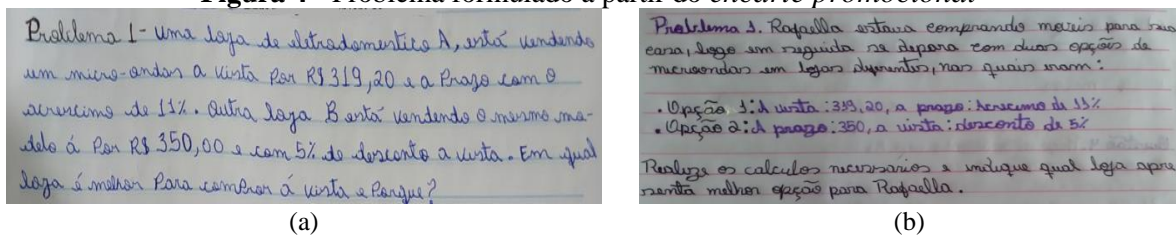 Figura 4 - Problema formulado a partir do encarte promocional
Problema 1- Uma loja de eletrodomestico A, está vendendo
um micro-ondas a vista Por R$ 319,20 e a Prazo com o
acrescimo de 11%. Outra loja B está vendendo o mesmo mo-
delo á Por R$ 350,00 e com 5% de desconto a vista. Em qual
loja é melhor Para comprar á vista e Porque?
(a)
Problema 1. Rafaella estava comprando moveis para sua
casa, logo em seguida se depara com duas opções de
microondas em lojas diferentes, nas quais eram:
• Opção 1: A vista: 319,20, a prazo: Acrescimo de 11%
• Opção 2: A prazo: 350, a vista: desconto de 5%
Realize os calculos necessarios e indique qual loja apre
senta melhor opção para Rafaella.
(b)